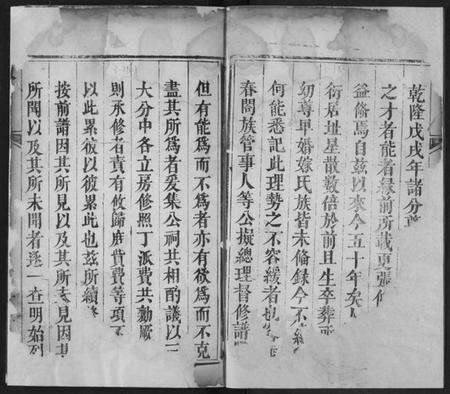 乾隆戊戌年譜分
之才者能着最前所載更張
益脩焉自茲以來今五十年矣
衍居址星散数倍於前且生卒葬
幼尊卑婚嫁氏族皆未脩錄今不
何能悉記此理勢之不容緩者也
春閤族管事人等公擬總理督修譜
但有能為而不為者亦有欲為而不克
盡其所為者爰集公祠共相酌議以三
大分中各立房修照丁派費共勷厥
則承修者責有攸歸庶貲費等項不
以此累彼以彼累此也茲所續
按前譜因其所見以及其所見因其
所聞以及其所未聞者逐一查明始列